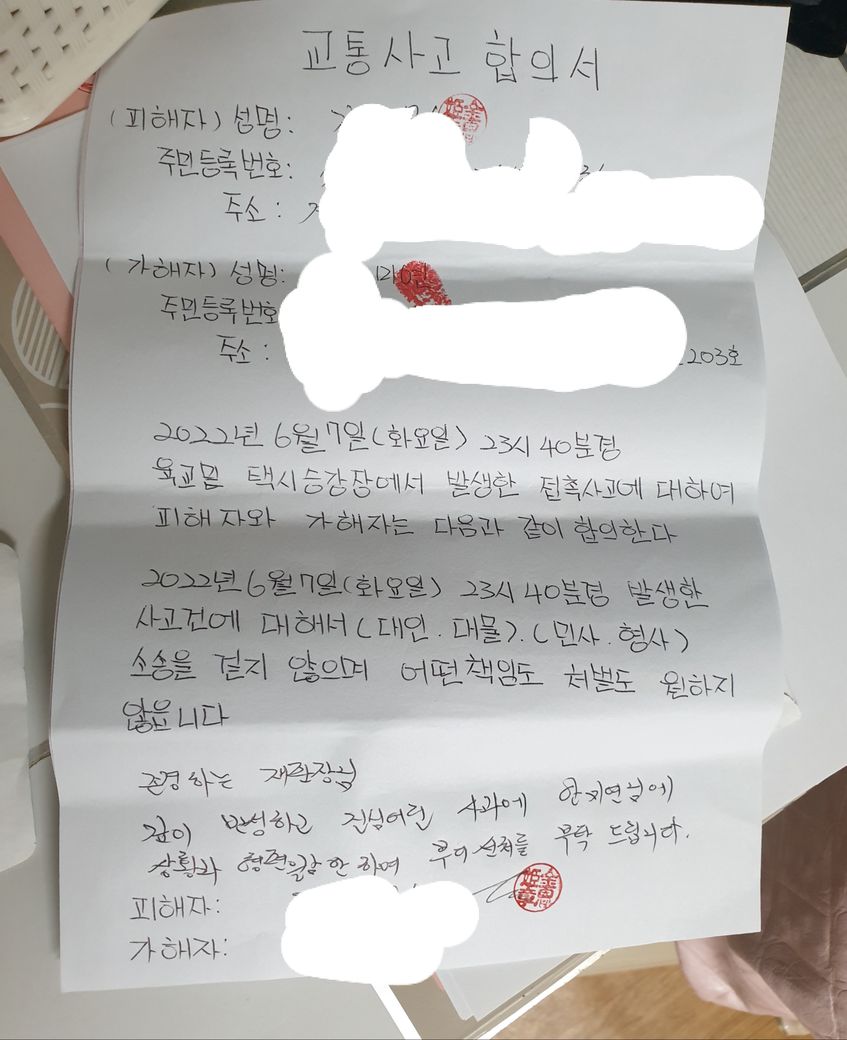 교통사고 합의서
(피해자) 성명:
주민등록번호:
주소:
(가해자) 성명:
주민등록번호
주소: 203호
2022년 6월 7일(화요일) 23시 40분경
육교밑 택시승강장에서 발생한 접촉사고에 대하여
피해자와 가해자는 다음과 같이 합의한다
2022년 6월 7일(화요일) 23시 40분경 발생한
사고건에 대해서 (대인.대물).(민사.형사)
소송을 걸지 않으며 어떤책임도 처벌도 원하지
않습니다
존경하는 재판장님
깊이 반성하고 진심어린 사과에 한지연님에
상황과 형편을감안하여 부디 선처를 부탁 드립니다.
피해자:
가해자: